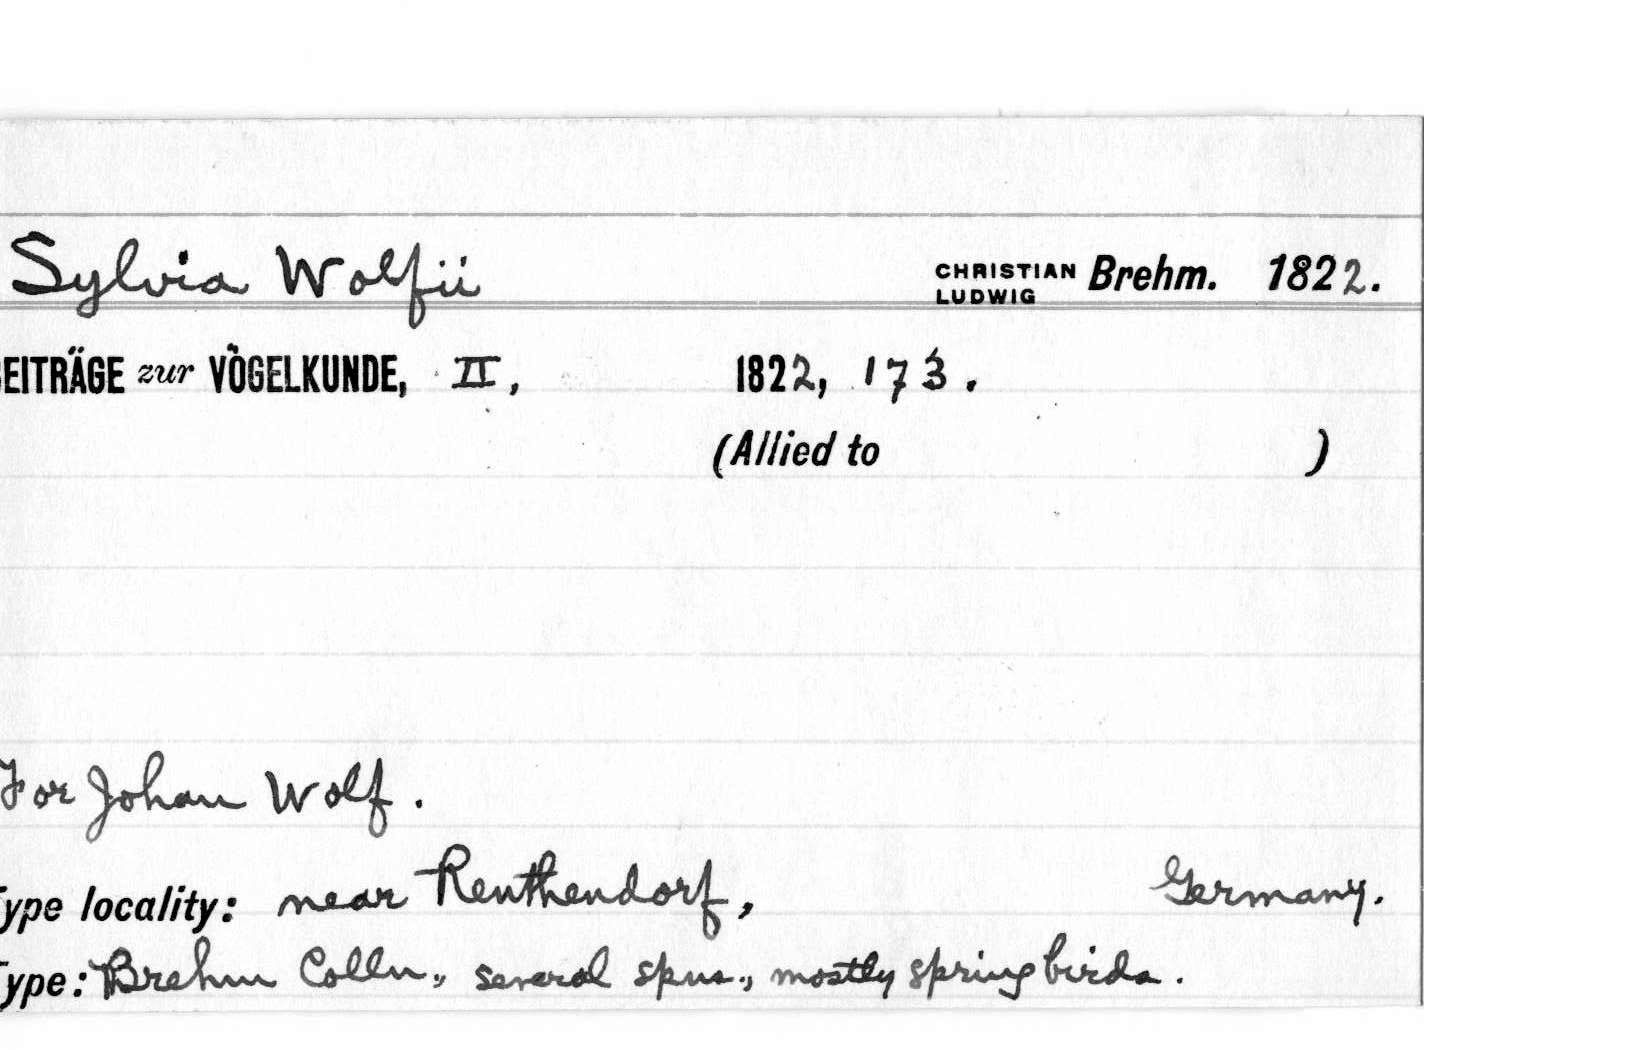 Sylvia Wolfii CHRISTIAN LUDWIG Brehm. 1822.
EITRÄGE zur VÖGELKUNDE, II, 1822, 173.
(Allied to )
For Johan Wolf.
ype locality: near Renthendorf, Germany.
ype: Brehm Colln., several spns., mostly spring birds.